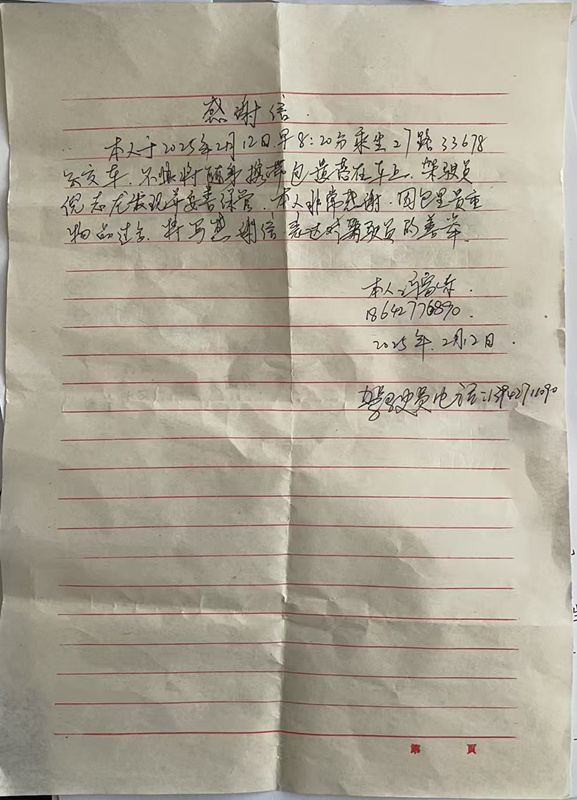 感谢信
本人于2025年2月12日早8:20分乘坐27路33678
公交车.不慎将随身携带包遗忘在车上.驾驶员
倪志在发现并妥善保管.本人非常感谢.因包里贵重
物品过多.特写感谢信表达对驾驶员的善举.
本人
18642776890.
2025年.2月12日.
驾驶员电话:
第 頁